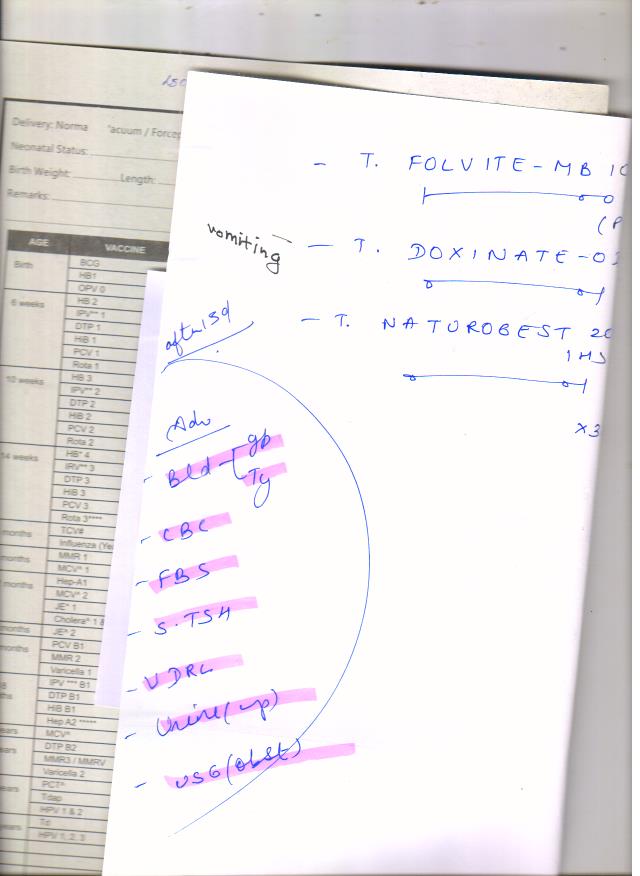 Delivery: Norma
acuum / Forcep
Neonatal Status:
Birth Weight: Length:
Remarks:
AGE VACCINE
Birth BCG
HB1
OPV 0
6 weeks HB 2
IPV** 1
DTP 1
HiB 1
PCV 1
Rota 1
10 weeks HB 3
IPV** 2
DTP 2
HiB 2
PCV 2
Rota 2
14 weeks HB* 4
IRV** 3
DTP 3
HiB 3
PCV 3
Rota 3****
months TCV#
Influenza (Ye
months MMR 1
MCV^ 1
months Hep-A1
MCV^ 2
JE^ 1
Cholera^ 1 &
months JE^ 2
months PCV B1
MMR 2
Varicella 1
IPV *** B1
DTP B1
HiB B1
Hep A2 *****
ears MCV^
ears DTP B2
MMR3 / MMRV
Varicella 2
ears PCT^
Tdap
HPV 1 & 2
ears Td
HPV 1, 2, 3
- T. FOLVITE-MB
(P
vomiting - T. DOXINATE-O
- T. NATUROBEST 20
1HS
x3
Adv
- Bld gp
Ty
- CBC
- FBS
- S.TSH
- VDRL
- Urine
- USG (obst)